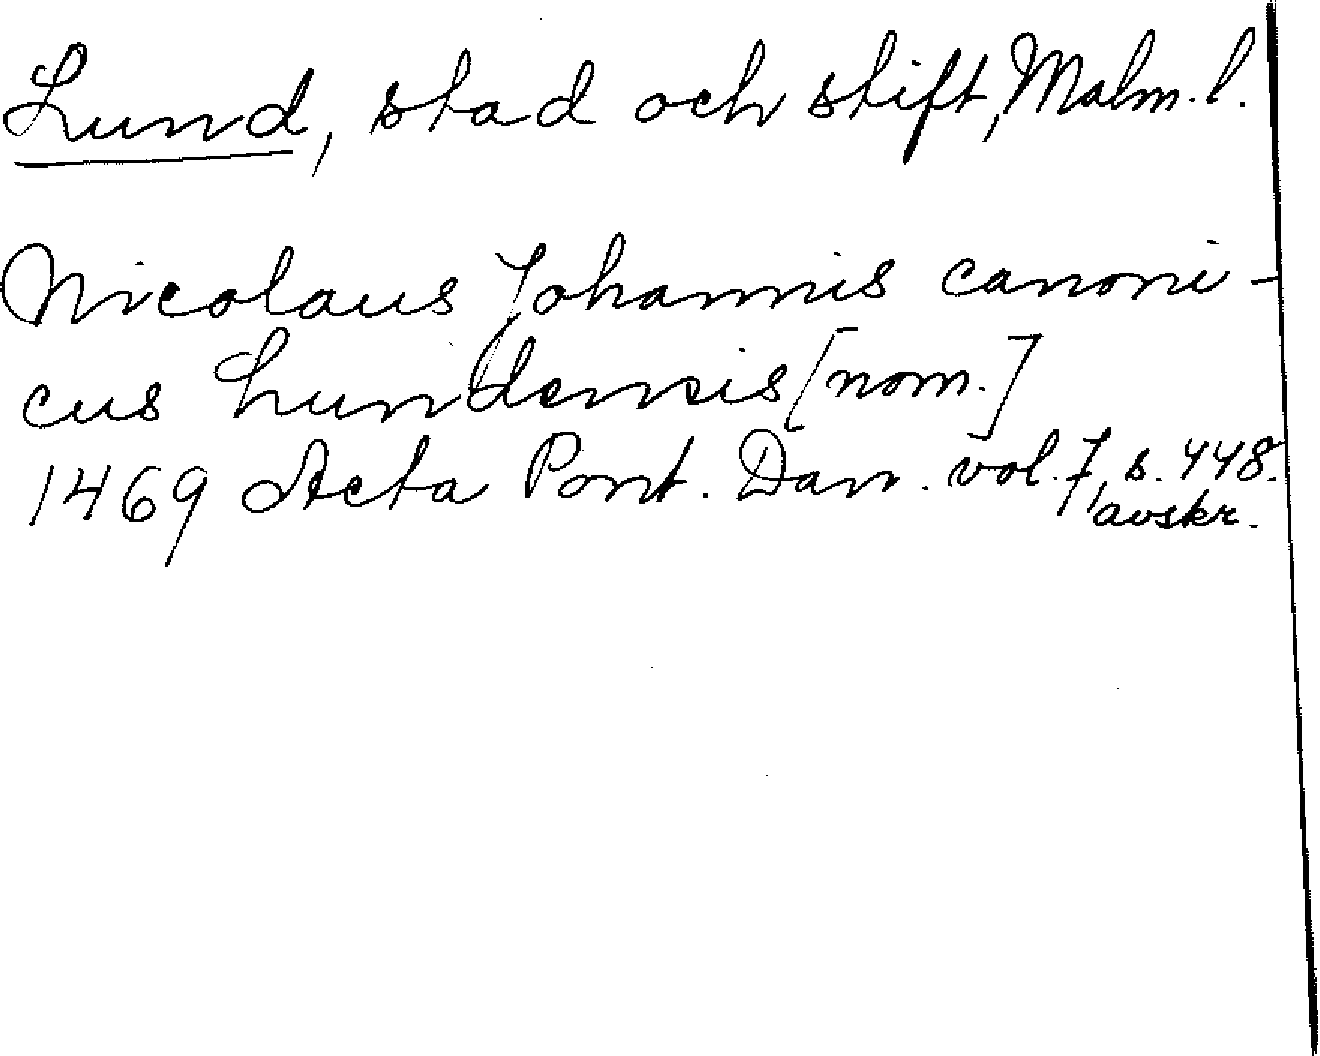 Lund, stad och stift, Malm. l.
Nicolaus Johannis canoni-
cus Lundensis [nom.]
1469 Acta Pont. Dan. vol. 7, s. 448.
avskr.